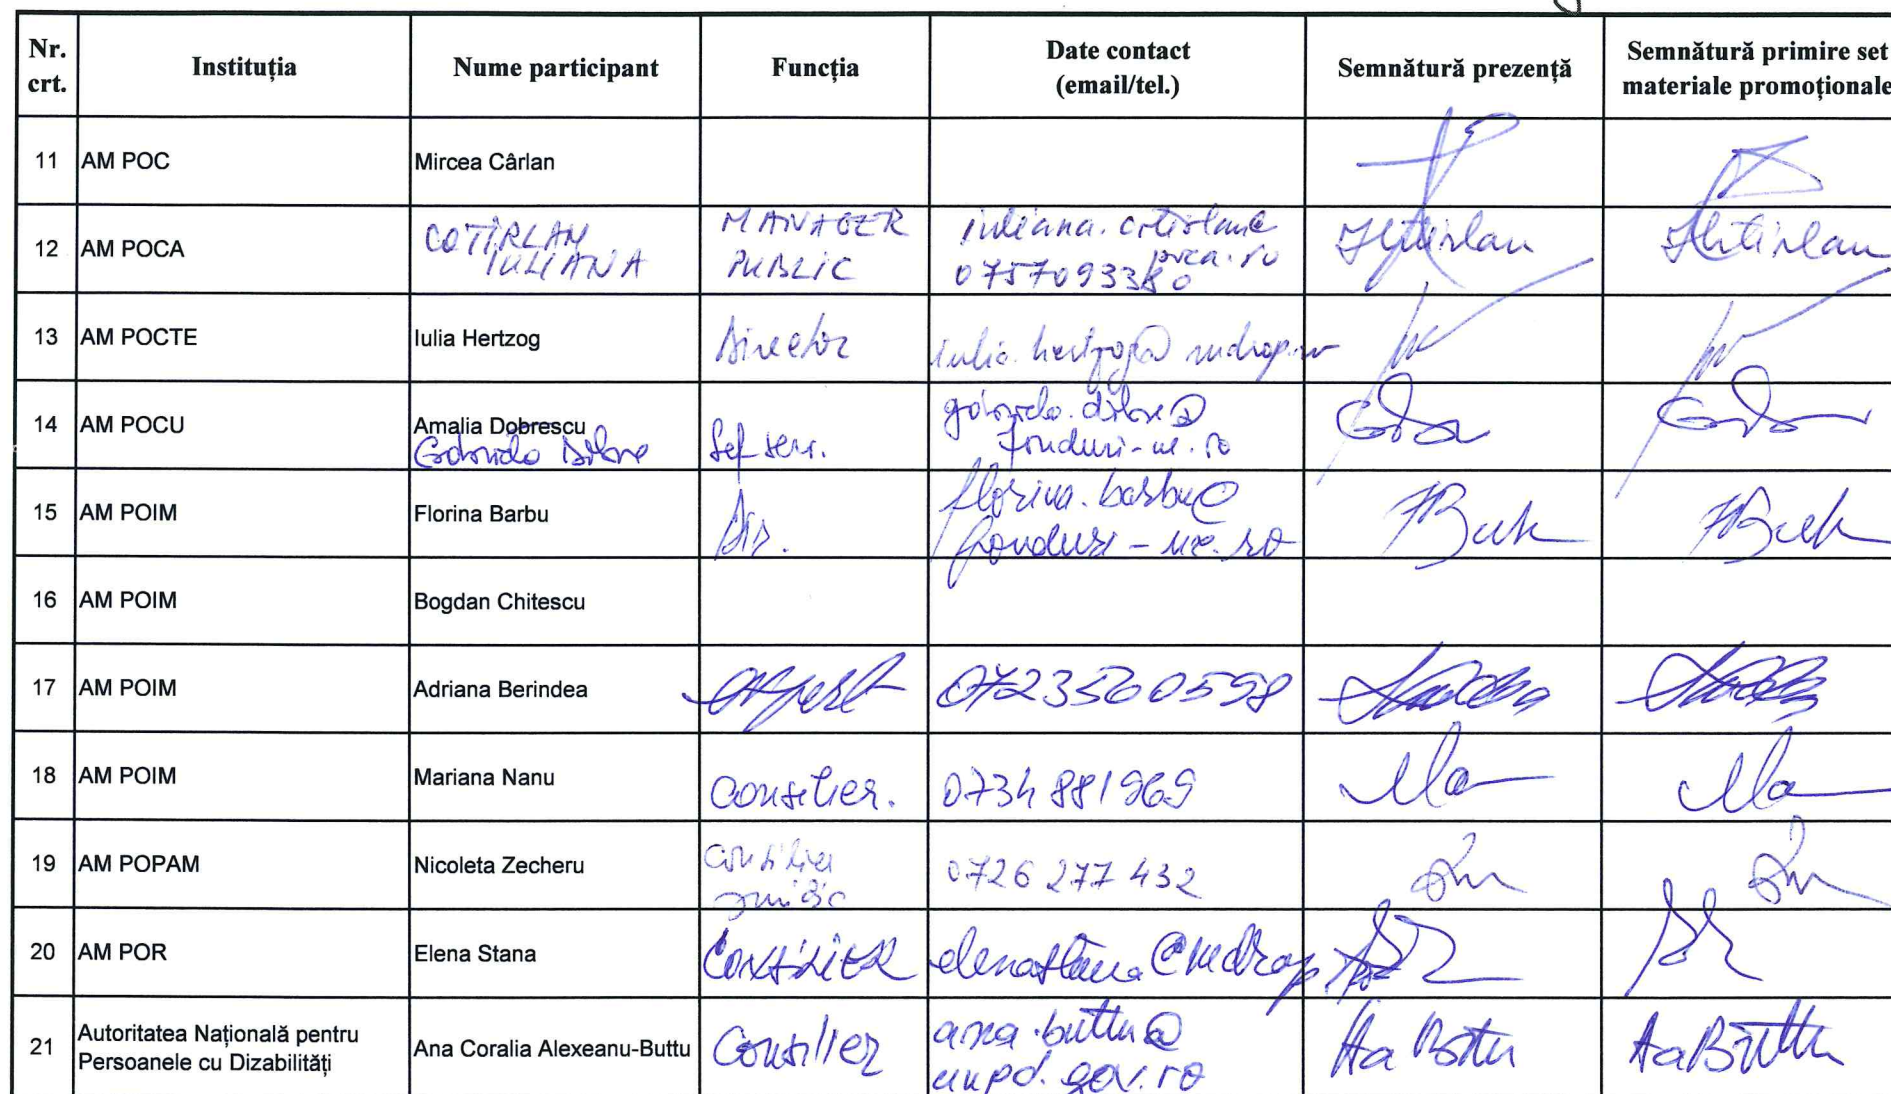 Nr. crt. Instituția Nume participant Funcția Date contact (email/tel.) Semnătură prezență Semnătură primire set materiale promoționale
11 AM POC Mircea Cârlan
12 AM POCA COTÎRLAN IULIANA MANAGER PUBLIC iuliana.cotirlan@ poca.ro
13 AM POCTE Iulia Hertzog Director iulia.hertzog@mdrap.ro
14 AM POCU Amalia Dobrescu
Gabriela Sef serv. fonduri-ue.ro
15 AM POIM Florina Barbu Dir. florina.barbu@
fonduri-ue.ro
16 AM POIM Bogdan Chitescu
17 AM POIM Adriana Berindea expert 0723560598
18 AM POIM Mariana Nanu Consilier. 0734 881969
19 AM POPAM Nicoleta Zecheru consilier 0726 277 432
20 AM POR Elena Stana CONSILIER elena.stana@mdrap
21 Autoritatea Națională pentru Persoanele cu Dizabilități Ana Coralia Alexeanu-Buttu Consilier ana.buttu@
anpd.gov.ro